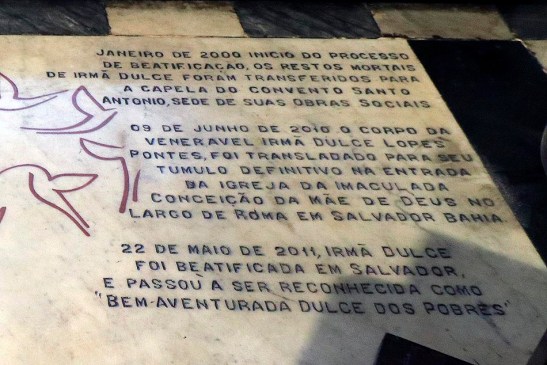 JANEIRO DE 2000 INICIO DO PROCESSO
DE BEATIFICAÇÃO, OS RESTOS MORTAIS
DE IRMÃ DULCE FORAM TRANSFERIDOS PARA
A CAPELA DO CONVENTO SANTO
ANTONIO, SEDE DE SUAS OBRAS SOCIAIS
09 DE JUNHO DE 2010 O CORPO DA
VENERAVEL IRMÃ DULCE LOPES
PONTES, FOI TRANSLADADO PARA SEU
TUMULO DEFINITIVO NA ENTRADA
DA IGREJA DA IMACULADA
CONCEIÇÃO DA MÃE DE DEUS NO
LARGO DE ROMA EM SALVADOR BAHIA
22 DE MAIO DE 2011, IRMÃ DULCE
FOI BEATIFICADA EM SALVADOR,
E PASSOU A SER RECONHECIDA COMO
"BEM-AVENTURADA DULCE DOS POBRES"